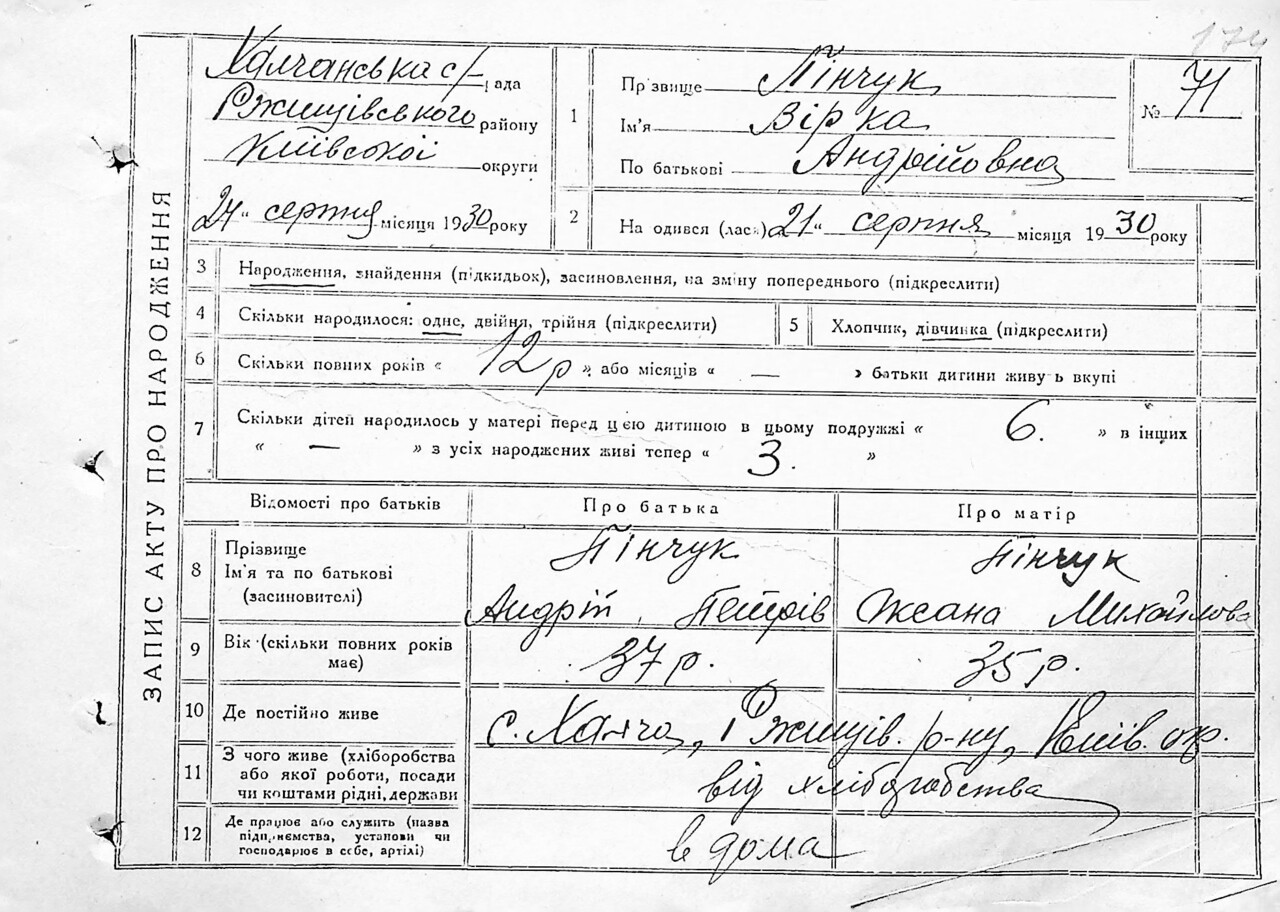 174
Халчанська с/рада
Ржищівського району
Київської округи
24 " серпня місяця 1930 року
1
Прізвище Пінчук
Ім'я Вірка
По батькові Андрійовна
№ 71
2
На одився (лась) 21 " серпня місяця 1930 року
ЗАПИС АКТУ ПРО НАРОДЖЕННЯ
3 Народження, знайдення (підкидьок), засиновлення, на зміну попереднього (підкреслити)
4 Скільки народилося: одне, двійня, трійня (підкреслити)
5 Хлопчик, дівчинка (підкреслити)
6 Скільки повних років « 12 р », або місяців « — » батьки дитини живуть вкупі
7 Скільки дітей народилось у матері перед цією дитиною в цьому подружжі « 6. » в інших
« — » з усіх народжених живі тепер « 3. »
Відомості про батьків
Про батька
Про матір
8 Прізвище
Ім'я та по батькові
(засиновителі)
Пінчук
Андрій Петрів
Пінчук
Оксана Михайлова
9 Вік (скільки повних років
має)
37 р.
35 р.
10 Де постійно живе
с. Халча, Ржищів. р-ну, Київ. окр.
11 З чого живе (хліборобства
або якої роботи, посади
чи коштами рідні, держави
від хліборобства
12 Де працює або служить (назва
підприємства, установи чи
господарює в себе, артілі)
в дома